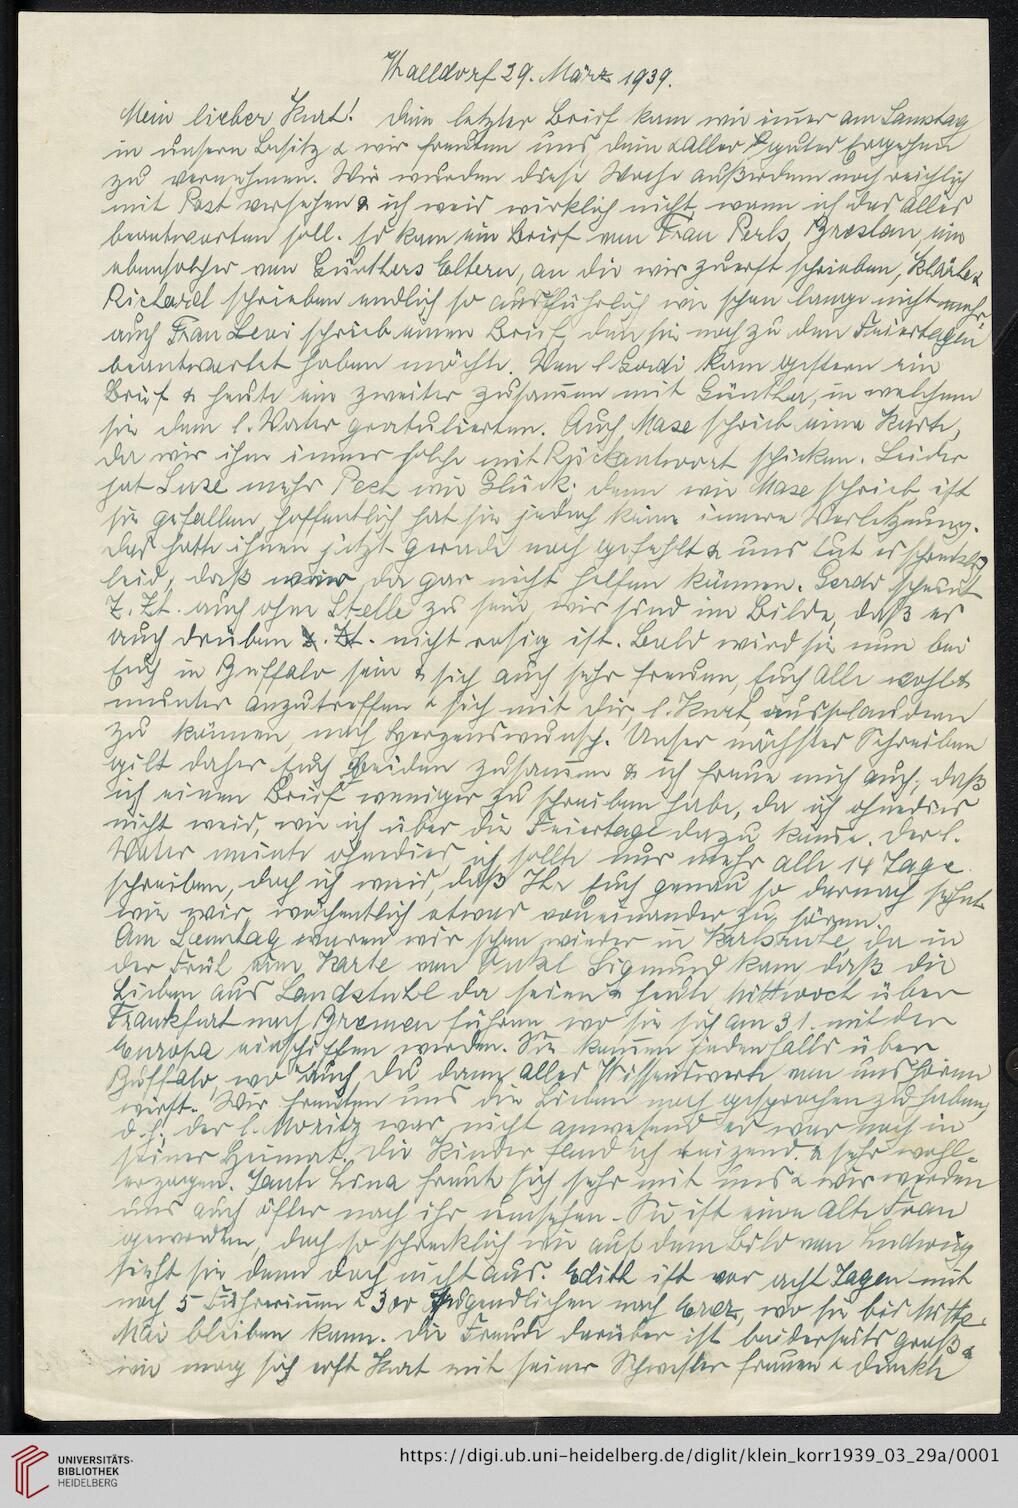 Walldorf 29. März 1939.
Mein lieber Kurt! Dein letzter Brief kam wie immer am Samstag
in unsern Besitz & wir freuten uns, Dein & Aller gutes Ergehen
zu vernehmen. Wir wurden diese Woche außerdem noch reichlich
mit Post versehen & ich weis wirklich nicht, wann ich das Alles
beantworten soll. So kam ein Brief von Frau Perls, Breslau, ein
ebensolcher von Günthers Eltern, an die wir zuerst schrieben, Klärle &
Richard schrieben endlich so ausführlich wie schon lange nicht mehr,
auch Frau Levi schrieb einen Brief, den sie noch zu den Feiertagen
beantwortet haben möchte. Von l. Gerdi kam gestern ein
Brief & heute ein zweiter zusammen mit Günther, in welchem
sie dem l. Vater gratulierten. Auch Mase schrieb eine Karte,
da wir ihm immer solche mit Rückantwort schicken. Leider
hat Suse mehr Pech wie Glück; denn wie Mase schrieb, ist
sie gefallen, hoffentlich hat sie jedoch keine innere Verletzung.
Das hatte ihnen jetzt gerade noch gefehlt & uns tut es schrecklich
leid, daß wir da gar nicht helfen können. Gerdi scheint
z. Zt. auch ohne Stelle zu sein, wir sind im Bilde, daß es
auch drüben z. Zt. nicht rosig ist. Bald wird sie nun bei
Euch in Buffalo sein & sich auch sehr freuen, Euch Alle wohl &
munter anzutreffen & sich mit Dir l. Kurt, ausplaudern
zu können, nach Herzenswunsch. Unser nächstes Schreiben
gilt daher Euch Beiden zusammen & ich freue mich auch, daß
ich einen Brief weniger zu schreiben habe, da ich ohnedies
nicht weis, wie ich über die Feiertage dazu komme. Der l.
Vater meinte ohnedies, ich sollte nur mehr alle 14 Tage
schreiben, doch ich weis, daß Ihr Euch genau so darnach sehnt
wie wir, wöchentlich etwas voneinander zu hören.
Am Sonntag waren wir schon wieder in Karlsruhe, da in
der Früh eine Karte von Onkel Sigmund kam daß die
Lieben aus Landstuhl da seien & heute Mittwoch über
Frankfurt nach Bremen führen, wo sie sich am 31. mit der
Europa einschiffen werden. Sie kommen jedenfalls über
Buffalo, wo auch Du dann alles Wissenswerte von uns hören
wirst. Wir freuten uns die Lieben noch gesprochen zu haben,
d. h. der l. Moritz war nicht anwesend er war noch in
seiner Heimat. Die Kinder fand ich reizend & sehr wohl-
erzogen. Tante Lina freute sich sehr mit uns & wir werden
uns auch öfter nach ihr umsehen. Sie ist eine alte Frau
geworden, doch so schrecklich wie auf dem Bild von Ludwig
sieht sie denn doch nicht aus. Edith ist vor acht Tagen mit
noch 5 Führerinnen & 30 Jugendlichen nach Erez, wo sie bis Mitte
Mai bleiben kann. Die Freude darüber ist beiderseits groß &
wie mag sich erst Kurt mit seiner Schwester freuen & dünkte
UNIVERSITÄTS-
BIBLIOTHEK
HEIDELBERG
https://digi.ub.uni-heidelberg.de/diglit/klein_korr1939_03_29a/0001